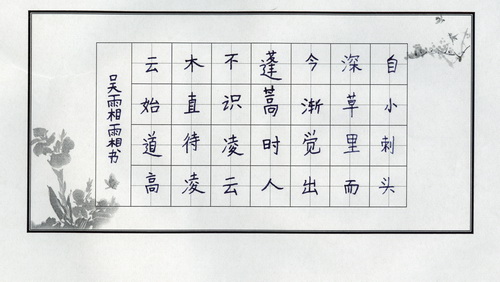 自小刺头
深草里而
今渐觉出
蓬蒿时人
不识凌云
木直待凌
云始道高
吴霜霜书